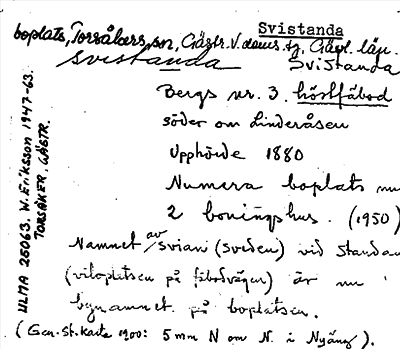 Svistanda
boplats, Torsåkers sn, Gästr. V. doms. tg, Gävl. län.
Svistanda Svistanda
Bergs nr. 3. höstfäbod
söder om Linderåsen
Upphörde 1880
Numera boplats m
2 boningshus. (1950)
Namnet av svian (sveden) vid standan
(viloplatsen på fäbodvägen) är nu
bynamnet på boplatsen.
(Gen. St. Karta 1900: 5 mm N om N. i Nyäng).
ULMA 25063. W. Eriksson 1947-63.
TORSÅKER. GÄSTR.